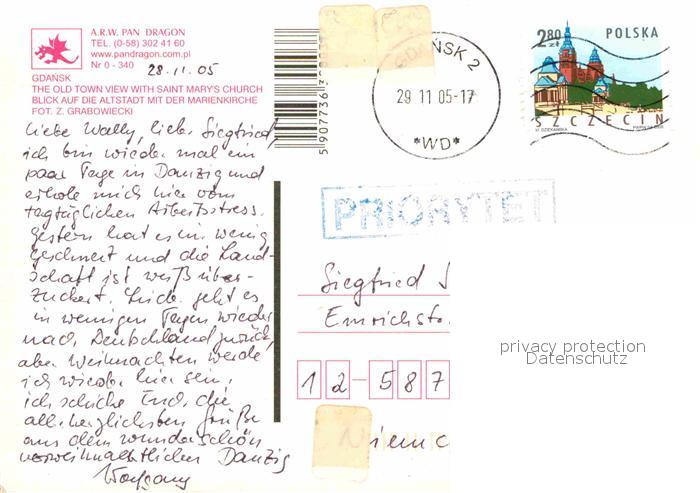 A.R.W. PAN DRAGON
TEL. (0-58) 302 41 60
www.pandragon.com.pl
Nr 0 - 340
28.11.05
GDAŃSK
THE OLD TOWN VIEW WITH SAINT MARY'S CHURCH
BLICK AUF DIE ALTSTADT MIT DER MARIENKIRCHE
FOT. Z. GRABOWIECKI
Liebe Wally, lieber Siegfried,
ich bin wieder mal ein
paar Tage in Danzig und
erhole mich hier vom
tagtäglichen Arbeitsstress.
Gestern hat es ein wenig
geschneit und die Land-
schaft ist weiß über-
zuckert. Leider geht es
in wenigen Tagen wieder
nach Deutschland zurück,
aber Weihnachten werde
ich wieder hier sein.
ich schicke Euch die
allerherzlichsten Grüße
aus dem wunderschön
vorweihnachtlichen Danzig
Wolfgang
GDAŃSK 2
29 11 05-17
*WD*
2,80 zł
POLSKA
SZCZECIN
PRIORYTET
Siegfried
Emrichst
12-587
Niemc
privacy protection
Datenschutz